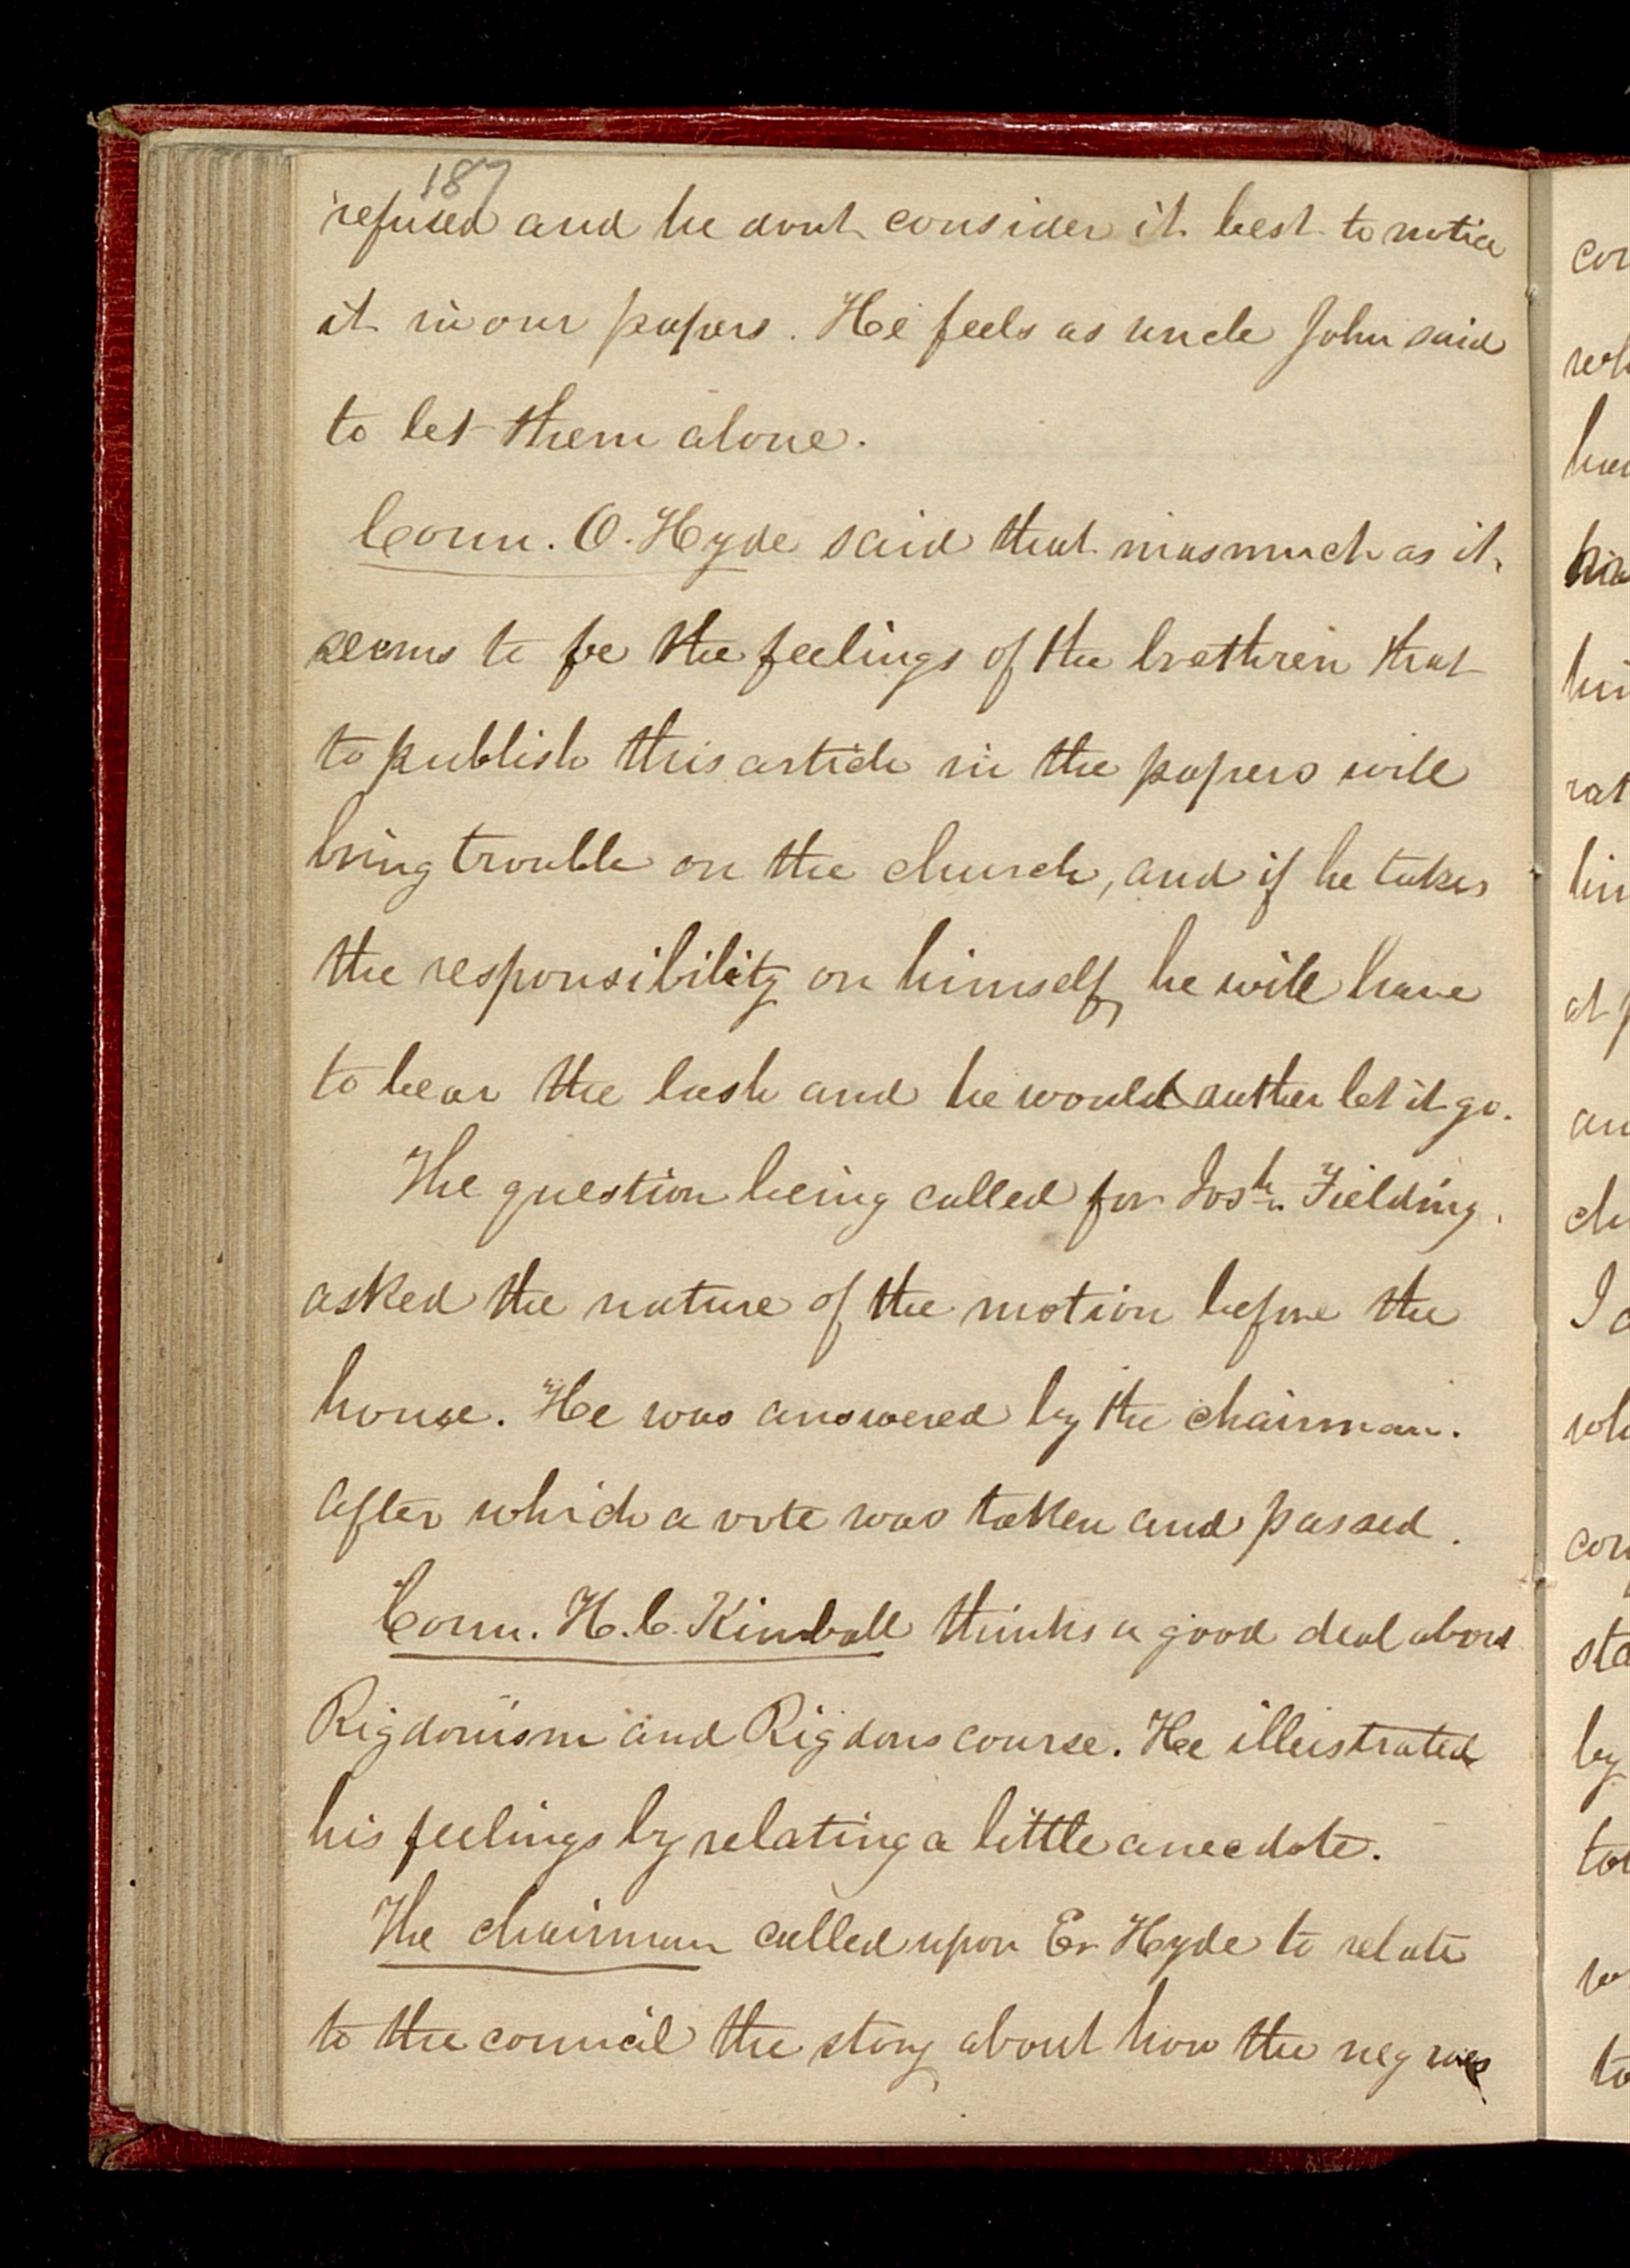 187
refused and he dont consider it best to notice
it in our papers. He feels as uncle John said
to let them alone.
Coun. O. Hyde said that inasmuch as it
seems to be the feelings of the brethren that
to publish this article in the papers will
bring trouble on the church, and if he takes
the responsibility on himself, he will have
to bear the lash and he would rather let it go.
The question being called for Josh. Fielding
asked the nature of the motion before the
house. He was answered by the chairman.
after which a vote was taken and passed.
Coun. H. C. Kimball thinks a good deal about
Rigdonism and Rigdons course. He illustrated
his feelings by relating a little anecdote.
The chairman called upon Er Hyde to relate
to the council the story about how the negroes